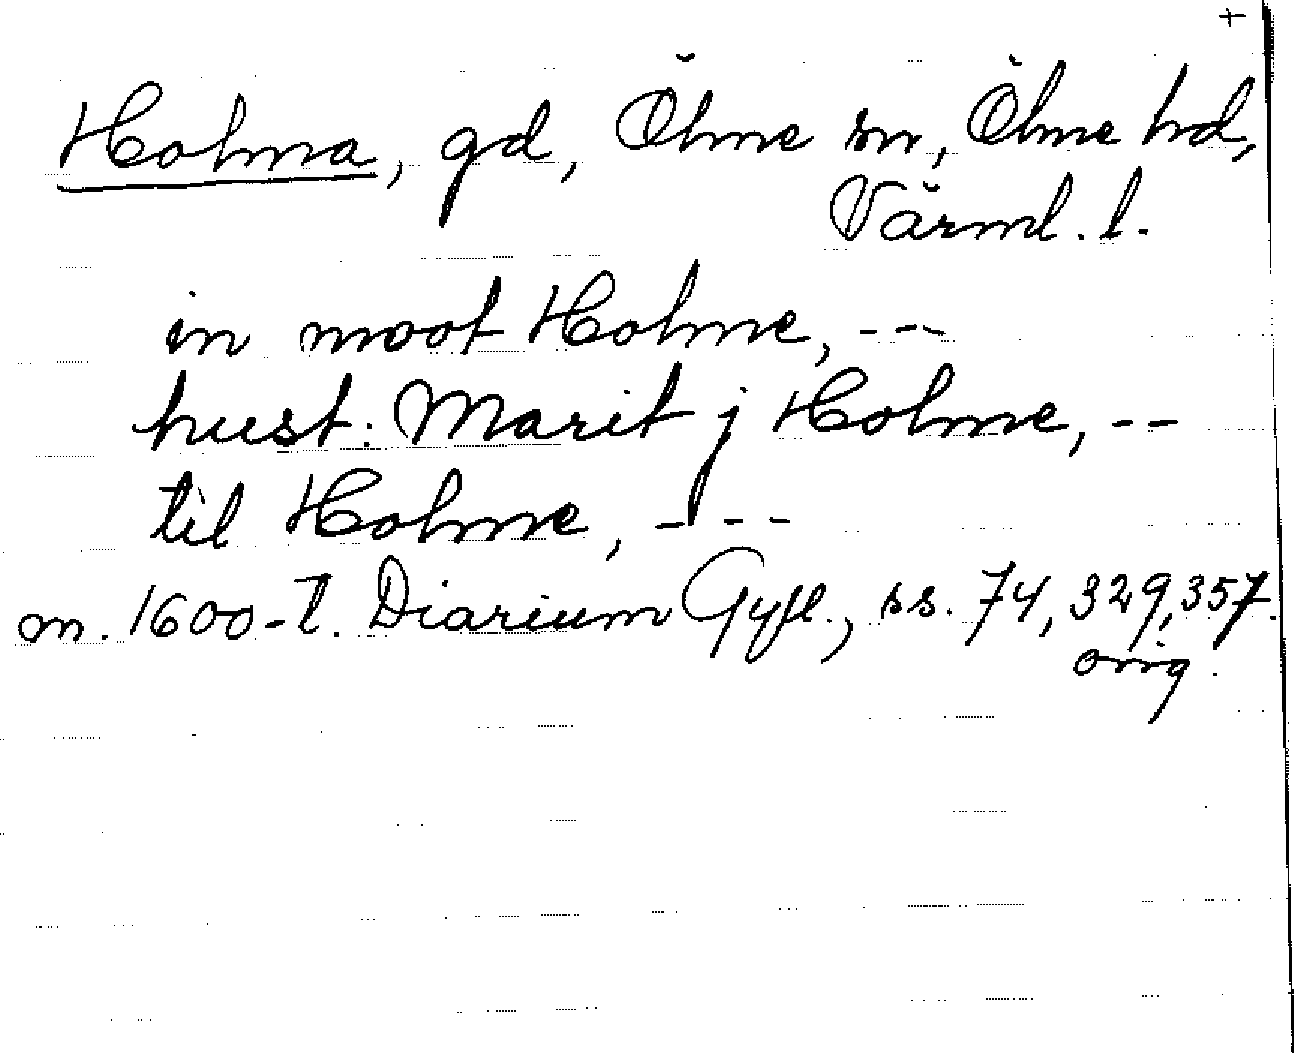 +
Holma, gd, Ölme sn, Ölme hd,
Värml. l.
in moot Holme, ---
hust: Marit j Holme, --
til Holme, ---
m. 1600-t. Diarium Gyll., ss. 74, 329, 357.
orig.